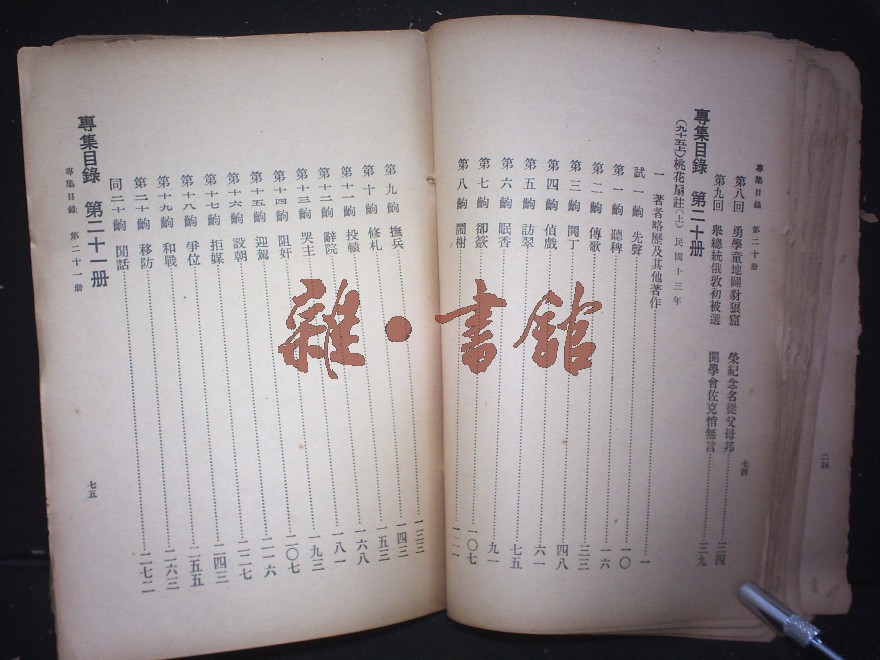 專集目錄 第二十册
第八回 勇學童地圖對狠窟 榮紀念名從父母邦 三四
第九回 舉總統俄敦初被選 開學會佐克悄無言 三九
七四
專集目錄 第二十册
(九十五上)桃花扇註(上) 民國十三年
一 著者略歷及其他著作 一
試一齣 先聲 一〇
第一齣 聽稗 一六
第二齣 傳歌 三三
第三齣 鬨丁 四八
第四齣 偵戲 六一
第五齣 訪翠 七五
第六齣 眠香 九一
第七齣 卻奩 一〇七
第八齣 鬧榭 一二一
第九齣 撫兵 一三三
第十齣 修札 一四三
第十一齣 投轅 一五三
第十二齣 辭院 一六八
第十三齣 哭主 一八一
第十四齣 阻奸 一九三
第十五齣 迎駕 二〇七
第十六齣 設朝 二一六
第十七齣 拒媒 二二七
第十八齣 爭位 二四三
第十九齣 和戰 二五五
第二十齣 移防 二六三
同二十齣 閒話 二七二
專集目錄 第二十一册
專集目錄 第二十一册
七五
二四
雜·書館